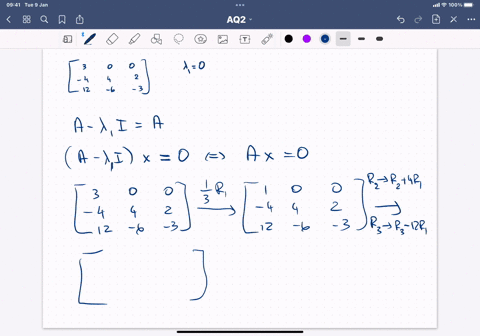 09:41 Tue 9 Jan
100%
AQ2
[3 0 0
-4 4 2
12 -6 -3] λ₁=0
A-λ₁I = A
(A-λ₁I) x = 0 ⇔ Ax = 0
[3 0 0
-4 4 2
12 -6 -3] 1/3 R₁ → [1 0 0
-4 4 2
12 -6 -3] R₂→R₂+4R₁
→
R₃→R₃-12R₁
[ ]